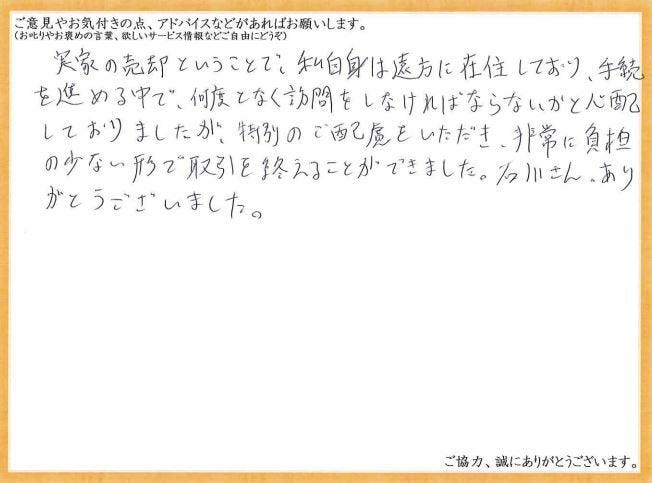 ご意見やお気付きの点、アドバイスなどがあればお願いします。
(お叱りやお褒めの言葉、欲しいサービス情報などご自由にどうぞ)
実家の売却ということで、私自身は遠方に在住しており、手続
を進める中で、何度となく訪問をしなければならないかと心配
しておりましたが、特別のご配慮をいただき、非常に負担
の少ない形で取引を終えることができました。石川さん、あり
がとうございました。
ご協力、誠にありがとうございます。